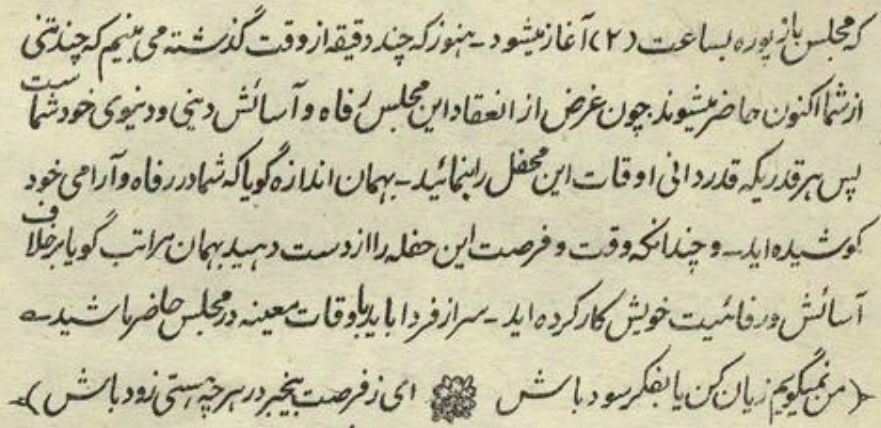 که مجلس باز پوره بساعت (۲) آغاز میشود ـ هنوز که چند دقیقه از وقت گذشته می بینیم که چند تنی
از شما اکنون حاضر میشوند. چون غرض از انعقاد این مجلس رفاه و آسائش دینی و دنیوی خود شما ست
پس هر قدریکه قدردانی اوقات این محفل را بنمائید ـ بهمان اندازه گویا که شما در رفاه و آرامی خود
کوشیده اید ـ و چندانکه وقت و فرصت این حفله را از دست دهید بهمان مراتب گویا برخلاف
آسائش و رفائیت خویش کار کرده اید ـ سر از فردا باید باوقات معینه در مجلس حاضر باشید ـ
(من نمیگویم زیان کن یا بفکر سود باش ای ز فرصت بیخبر در هر چه هستی زود باش)